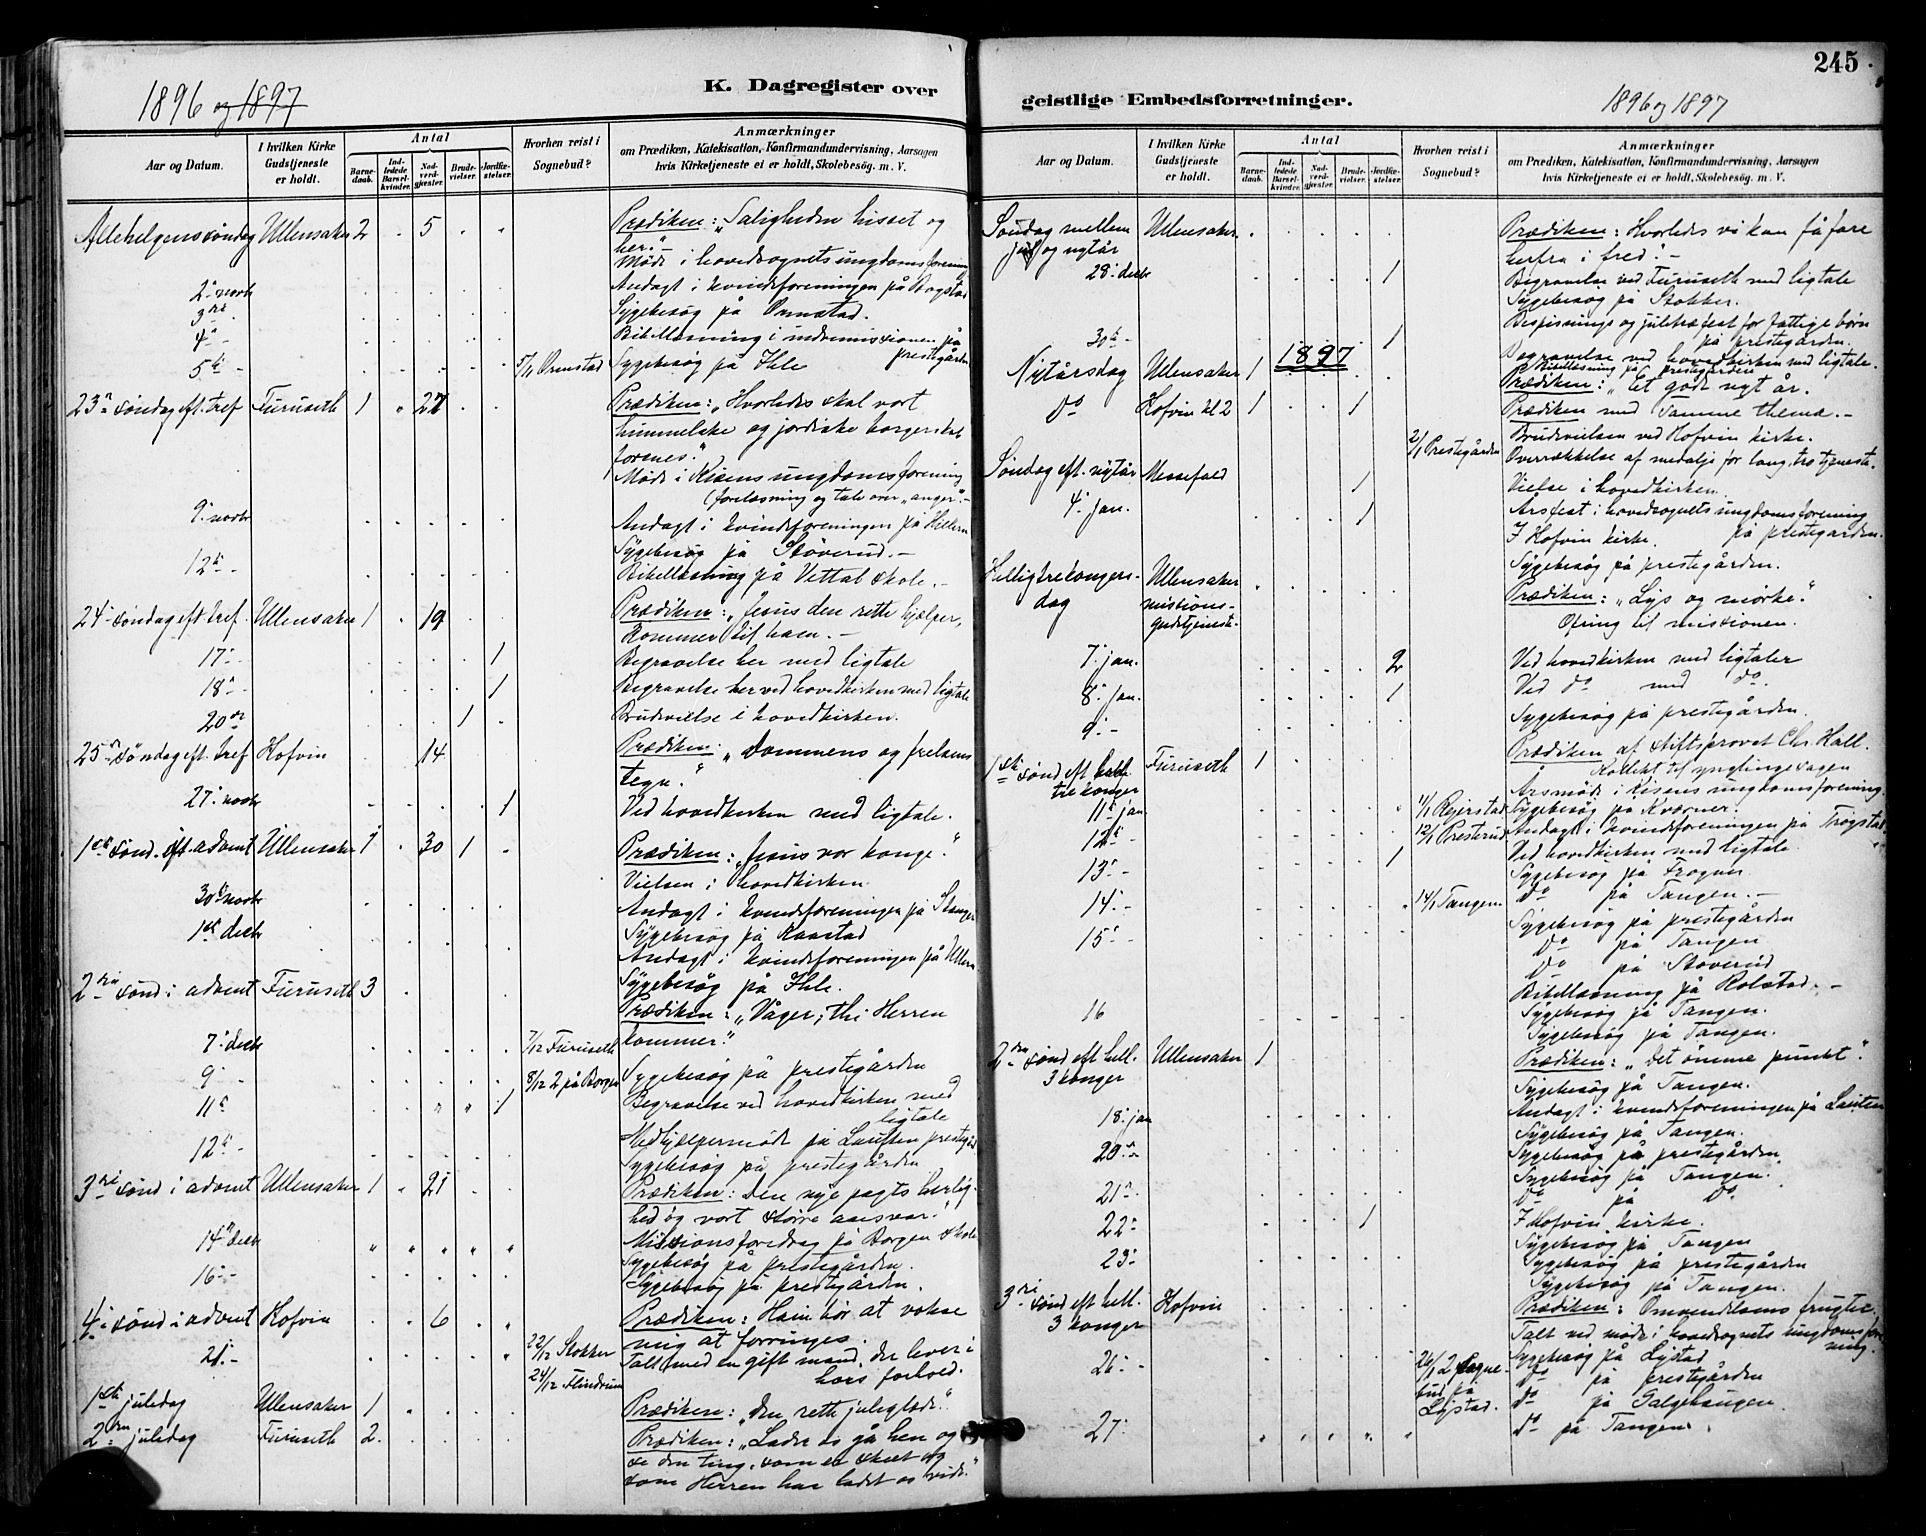 1896 og 1897
K. Dagregister over
Aar og Datum.
I hvilken Kirke Gudstjeneste er holdt.
Antal
Barnedaab.
Indledede Barselkvinder.
Nadverdgjæster.
Brudevielser.
Jordfæstelser.
Hvorhen reist i Sognebud?
Anmærkninger
om Prædiken, Katekisation, Konfirmandundervisning, Aarsagen
hvis Kirketjeneste ei er holdt, Skolebesøg. m. V.
Allehelgenssöndag Ullensaker 2 " 5 " " Prædiken: "Saligheden hisset og
her."
Möde i hovedsognets ungdomsforening
2. novbr Andagt i kvindeforeningen på Bogstad
3die Sygebesög på Ormstad.
4. - Bibellæsning i indremissionen på
prestegården
5te - 5/11 Ormstad Sygebesög på Hole
23. söndag eft. tref Furuseth 1 " 27 Prædiken: "Hvorledes skal vort
himmelske og jordiske borgerskab
forenes."
Möde i Kisens ungdomsforening
(forelæsning og tale over "anger". -
9. novbr Andagt i kvindeforeningen på Hillern
Sygebesög på Stöverud. -
12te - Bibellæsning på Vettal skole. -
24. söndag eft. tref. Ullensaker 1 " 19 Prædiken: "Jesus den rette hjælper,
Kommer til ham. -
17. - 1 Begravelse her med ligtale
18. - 1 Begravelse her ved hovedkirken med ligtale
20de - 1 Brudevielse i hovedkirken.
25. söndag eft. tref Hofvin 14 Prædiken: "Dommens og frelsens
tegn."
27. novbr 1 Ved hovedkirken med ligtale.
1ste sönd. eft. advent Ullensaker 1 " 30 1 " Prædiken: "Jesus vor konge."
Vielsen i hovedkirken.
30. novbr Andagt i kvindeforeningen på Stangen
1ste decbr Sygebesög på Raastad
Andagt i kvindeforeningen på Ullern
Sygebesög på Hole.
2den sönd i advent Furuseth 3 Prædiken: "Våger, thi Herren
kommer."
7. decbr 7/12 Furuseth
9. - 8/12 2 på Borgen Sygebesög på prestegården
11te 1 Begravelse ved hovedkirken med
ligtale
12te - Medhjælpermöde på prestegård
Sygebesög på prestegården
3die sönd i advent Ullensaker 1 " 21 Prædiken: Den nye pagts herlig-
hed og vort större ansvar."
14. decbr Missionsforedrag på Borgen skole
Sygebesög på prestegården.
16. - Sygebesög på prestegården.
4. sönd i advent Hofvin 6 Prædiken: Ham bör at vokse
mig at forringes.
22/12 Stokker
21. - Talt med en gift mand, der lever i
hors forhold.
24/12 Flindrum
1ste juledag Ullensaker 1 Prædiken: "Den rette juleglæde."
2den juledag Furuseth 2 Prædiken: "Lader os gå hen og
se den ting, som er skeet og
som Herren har ladet os vide."
245
geistlige Embedsforretninger.
1896 og 1897
Aar og Datum.
I hvilken Kirke Gudstjeneste er holdt.
Antal
Barnedaab.
Indledede Barselkvinder.
Nadverdgjæster.
Brudevielser.
Jordfæstelser.
Hvorhen reist i Sognebud?
Anmærkninger
om Prædiken, Katekisation, Konfirmandundervisning, Aarsagen
hvis Kirketjeneste ei er holdt, Skolebesög. m. V.
Söndag mellem Ullensaker Prædiken: Hvorledes vi kan få fare
jul og nytår herfra i fred. -
28. decbr 1 Begravelse ved Furuseth med ligtale
Sygebesög på Stokker.
Bespisnings og juletræfest for fattige börn
på prestegården.
30te - 1 Begravelse ved hovedkirken med ligtale.
1897 Bibellæsning på prestegården
Nytårsdag Ullensaker 1 Prædiken: "Et godt nyt år.
Do Hofvin kl 2 1 1 Prædiken med samme thema. -
Brudevielsen ved Hofvin kirke.
2/1 Prestegården Overrækkelse af medalje for lang, tro tjeneste.
Söndag eft. nytår Messefald
1 Vielse i hovedkirken.
4. jan. 1 Årsfest i hovedsognets ungdomsforening
på prestegården.
I Hofvin kirke.
Sygebesög på prestegården.
Helligtrekongers- Ullensaker Prædiken: "Lys og mörke."
dag missions-
gudstjeneste. Ofring til missionen.
7. jan. 2 Ved hovedkirken med ligtaler
8. jan. 1 Ved do med do.
9. - Sygebesög på prestegården.
1ste sönd eft hell. Furuseth 1 Prædiken af stiftsprovst Chr. Hall.
tre konger Kollekt til ynglingesagen
Årsmöde i Kisens ungdomsforening.
11te jan. 11/1 Rejerstad Sygebesög på Kværner.
12te - 12/1 Presterud Andagt i kvindeforeningen på Trögstad
1 Ved hovedkirken med ligtale.
13. - Sygebesög på Frogner
14. - 14/1 Tangen do på Tangen. -
Sygebesög på prestegården
15. - Do på Tangen
Do på Stöverud
Bibellæsning på Rolstad. -
16 Sygebesög på Tangen.
Sygebesög på Tangen.
2den sönd eft hell. Ullensaker 1 Prædiken: "Det ömme punkt."
3 konger Sygebesög på Tangen.
Andagt i kvindeforeningen på
18. jan Sygebesög på Tangen.
20. - Sygebesög på prestegården
Sygebesög på Tangen.
21. - do på Do.
22. 1 I Hofvin kirke.
Sygebesög på Tangen
23. Sygebesög på prestegården
Sygebesög på Tangen.
3die sönd eft hell. Hofvin Prædiken: Omvendelsens frugter.
3 konger Talt ved möde i hovedsognets ungdomsfore-
ning.
26. - 26/1 2 sogne- Sygebesög på Lystad
bud på do på prestegården
Lystad. do på Galgehaugen.
27. do på Tangen.